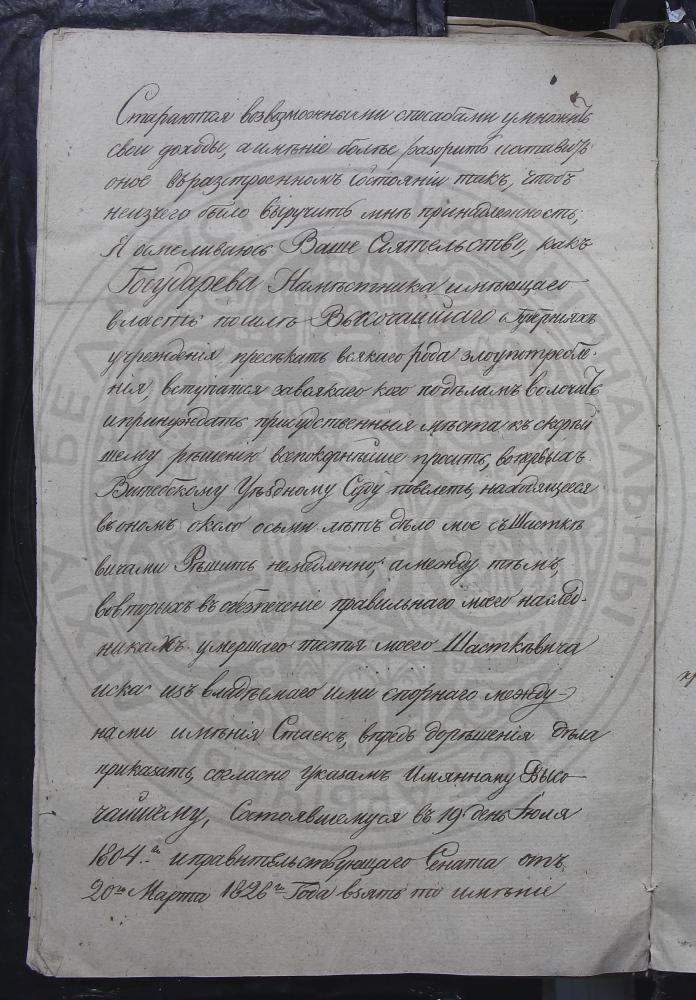 Стараются возвозможными способами умножить
свои доходы, а имѣніе болѣе разорить и оставить
оное въ разстроенномъ состояніи такъ, чтобъ
неизчего было выручить мнѣ принадлежность,
Я осмеливаюсь Ваше Сіятельство, какъ
Государева Намѣстника имѣющаго
власть по силѣ Высочайшаго о Губерніяхъ
учрежденія пресѣкать всякаго рода злоупотребле-
нія, вступатся завсякаго кого по дѣламъ волочитъ
и принуждать присудственныя мѣста къ скорѣй
шему рѣшенію всепокорнѣйше просить, вопервыхъ
Витебскому Уѣздному Суду повелеть, находящееся
въ ономъ около осьми лѣтъ дѣло мое съ Шасткѣ
вичами Рѣшить немедленно, а между тѣмъ,
вовторыхъ въ обезпеченіе правильнаго моего наслед-
никахъ умершаго тестя моего Шасткѣвича
иска изъ владѣемаго ими спорнаго между
нами имѣнія Стаекъ, впредь дорѣшенія дѣла
приказать, согласно Указамъ Имянному Высо-
чайшему, Состоявшемуся въ 19 день Іюля
1804.го и правительствующаго Сената отъ
20го Марта 1826го Года взять то имѣніе
БЕЛА
НАЦЫЯНАЛЬНЫ